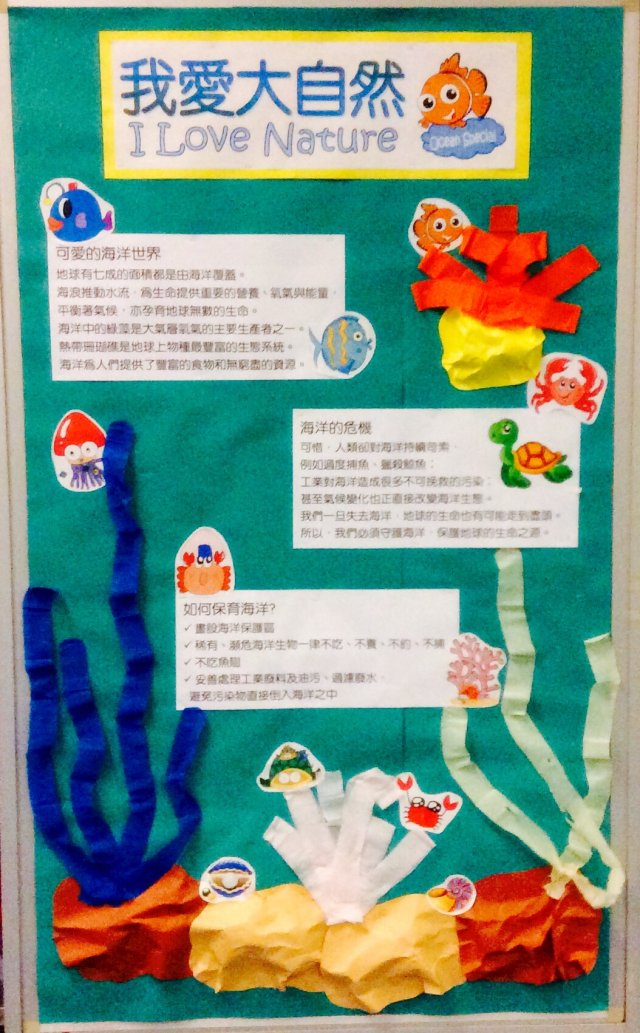 我愛大自然
I Love Nature
Ocean Special
可愛的海洋世界
地球有七成的面積都是由海洋覆蓋。
海浪推動水流，為生命提供重要的營養、氧氣與能量，
平衡著氣候，亦孕育地球無數的生命。
海洋中的綠藻是大氣層氧氣的主要生產者之一。
熱帶珊瑚礁是地球上物種最豐富的生態系統。
海洋為人們提供了豐富的食物和無窮盡的資源。
海洋的危機
可惜，人類卻對海洋持續苛索，
例如過度捕魚、獵殺鯨魚；
工業對海洋造成很多不可挽救的污染；
甚至氣候變化也正直接改變海洋生態。
我們一旦失去海洋，地球的生命也有可能走到盡頭。
所以，我們必須守護海洋，保護地球的生命之源。
如何保育海洋?
✓ 畫設海洋保護區
✓ 稀有、瀕危海洋生物一律不吃、不養、不釣、不捕
✓ 不吃魚翅
✓ 妥善處理工業廢料及油污、過濾廢水，
避免污染物直接倒入海洋之中